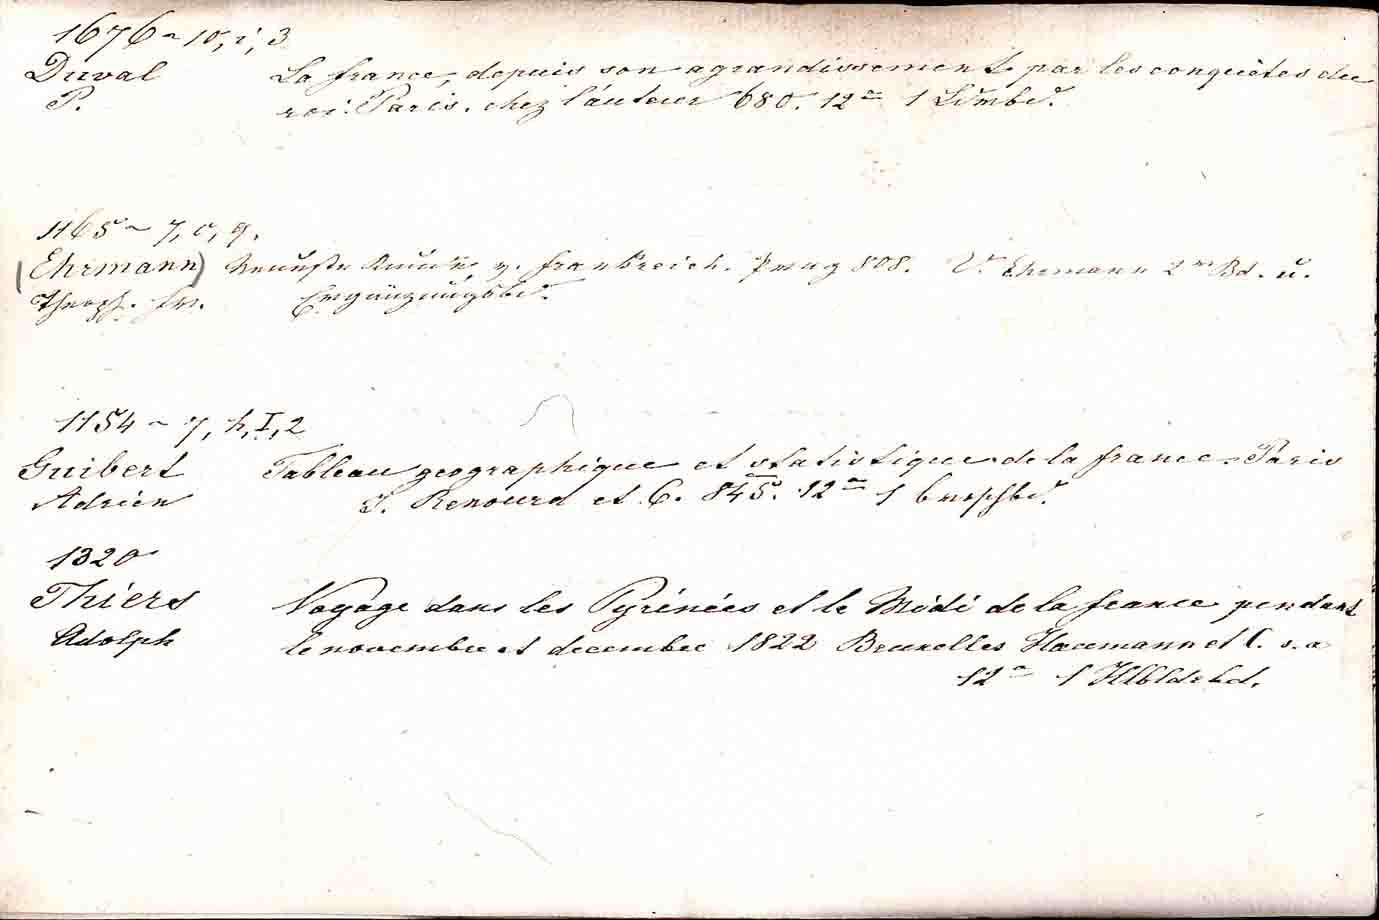 1676 ~ 10, i, 3
Duval La france, depuis son agrandissement par les conquêtes du
P. roi. Paris. chez l'auteur 680. 12° 1 Ldrbd.
1165 ~ 7, c, 9.
(Ehrmann) Neueste Kunde v. Frankreich. Prag 808. V. Ehrmann 2r Bd. u.
Theoph. Fr. Ergänzungsbd.
1154 ~ 7, h, I, 2
Guibert Tableau geographique et statistique de la france. Paris
Adrien J. Renourd et C. 845. 12° 1 broschbd.
1320
Thiers Voyage dans les Pyrénées et le Midi de la france pendant
Adolph le novembre et decembre 1822 Bruxelles Haumann et C. s. a
12° 1 Hlbldrbd.